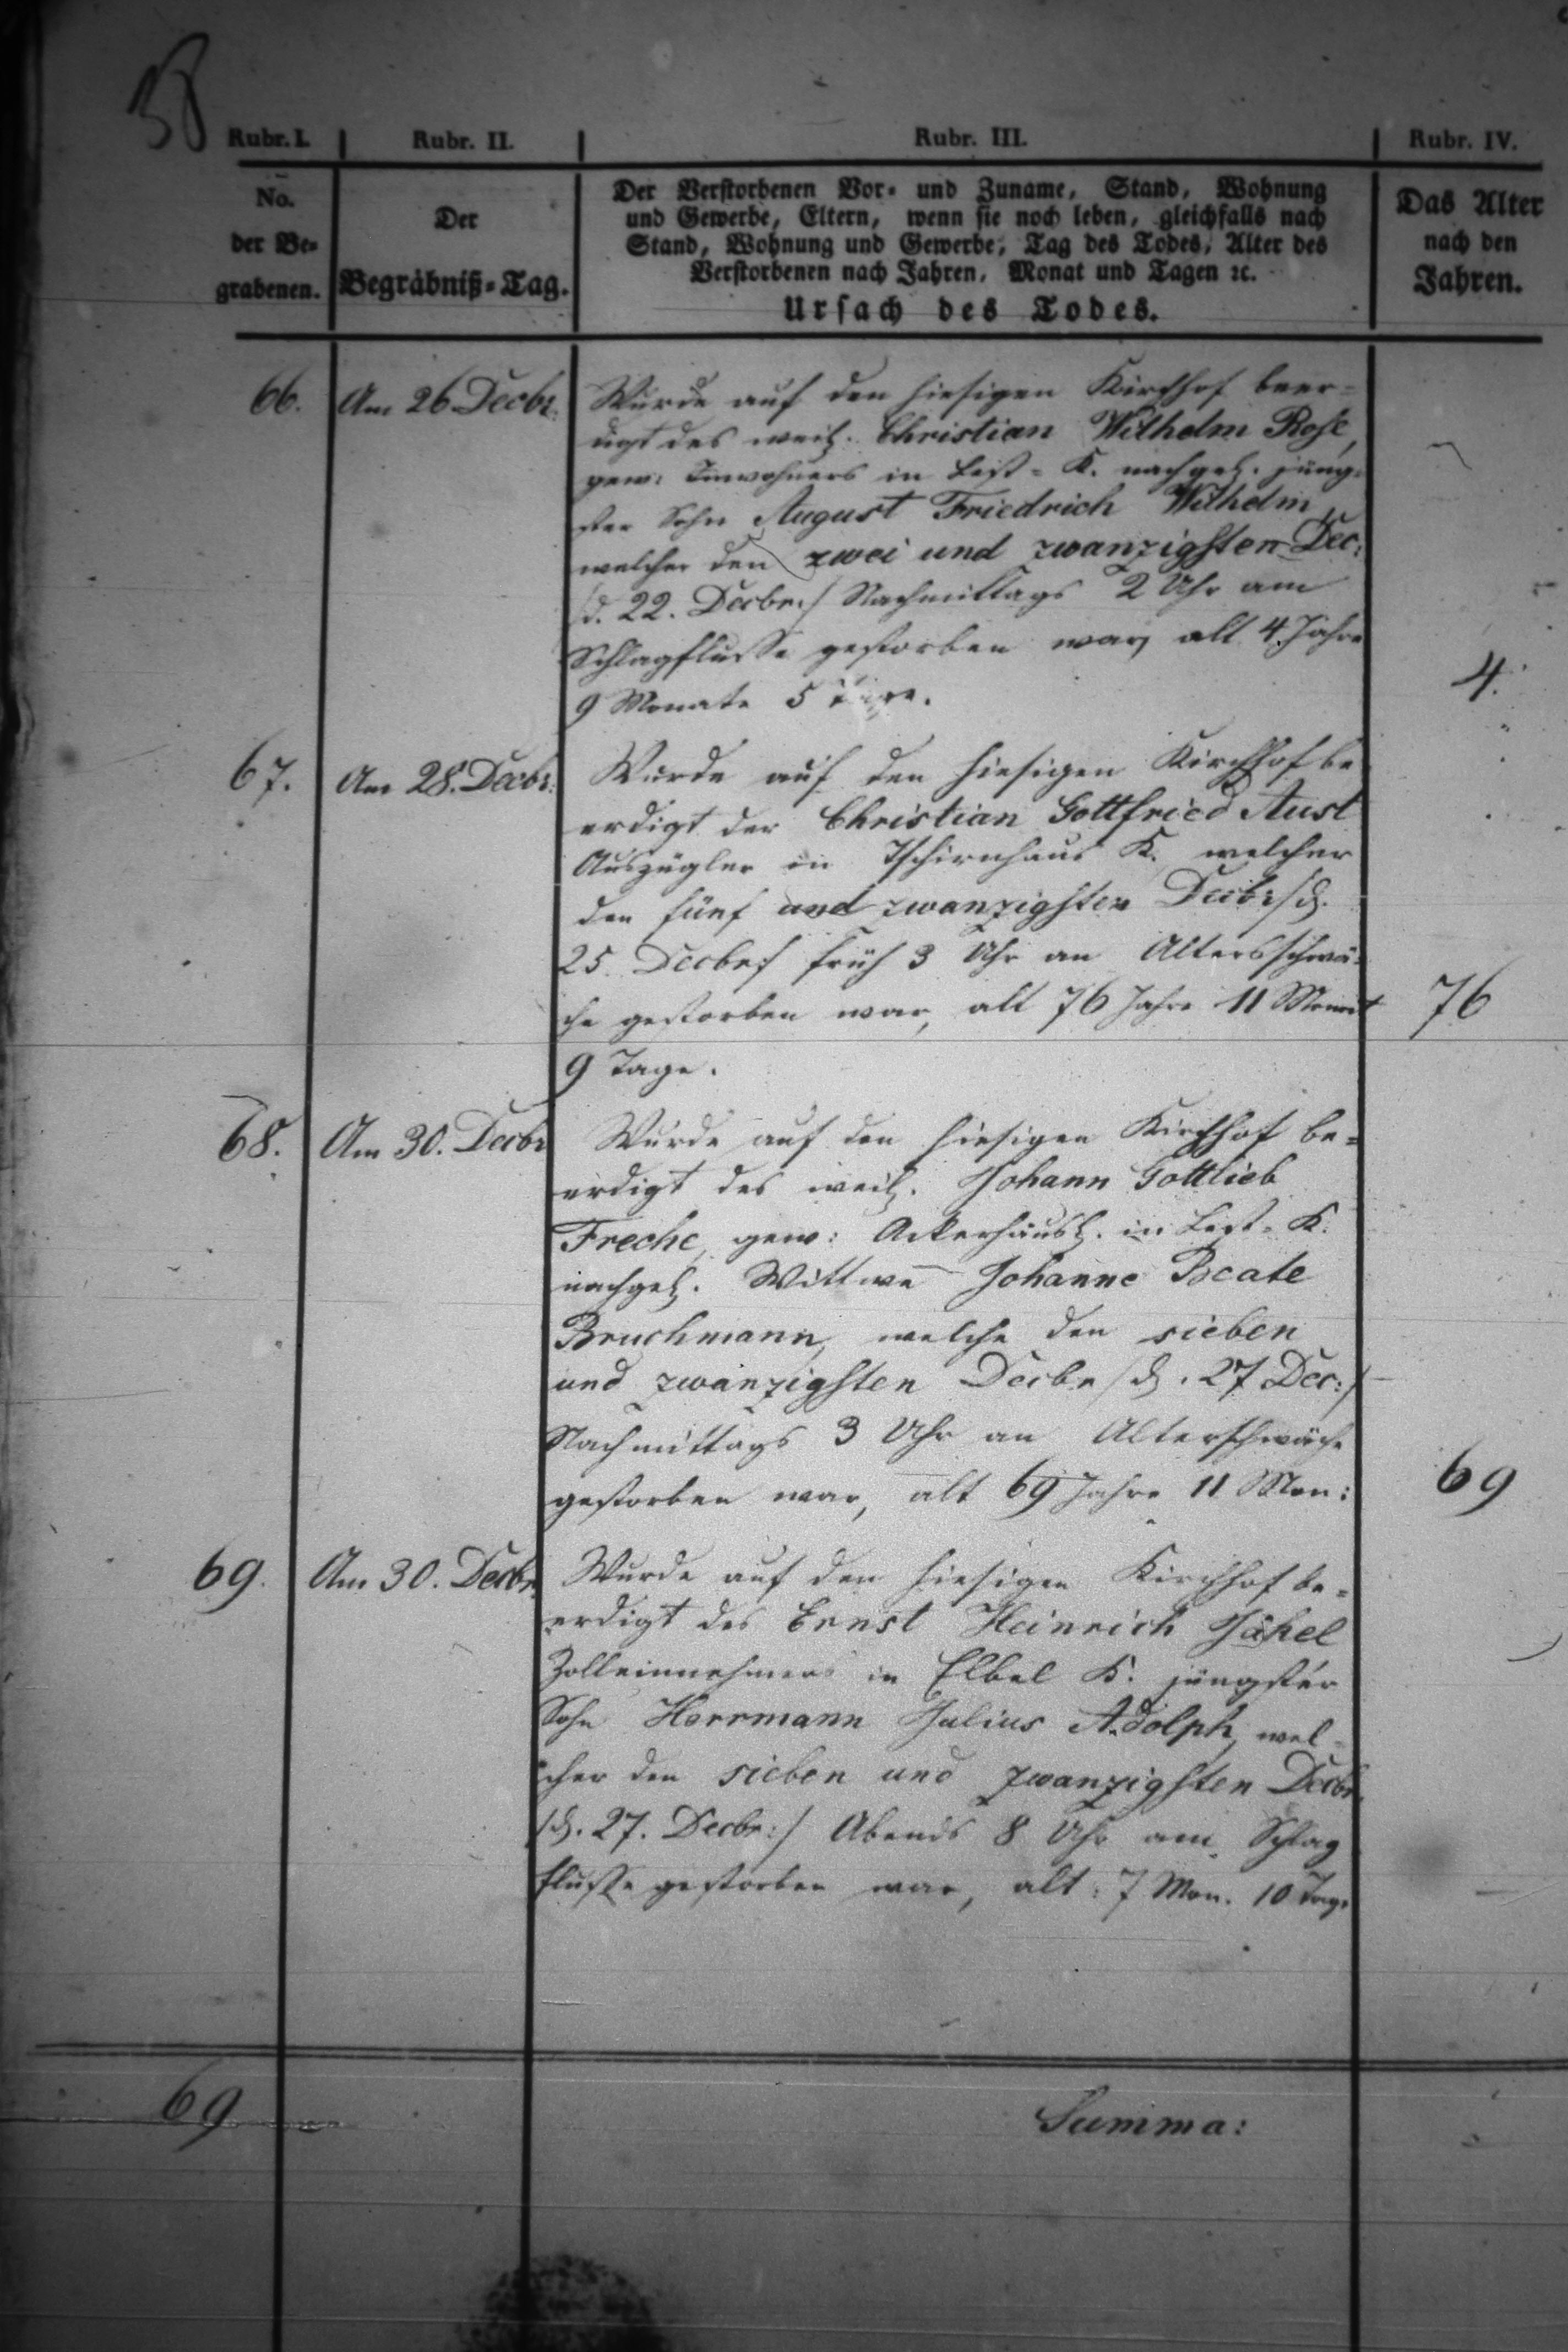 58
Rubr. I. Rubr. II. Rubr. III. Rubr. IV.
No. der Be- grabenen.
Der Begräbniß-Tag.
Der Verstorbenen Vor- und Zuname, Stand, Wohnung
und Gewerbe, Eltern, wenn sie noch leben, gleichfalls nach
Stand, Wohnung und Gewerbe, Tag des Todes, Alter des
Verstorbenen nach Jahren, Monat und Tagen ꝛc.
Ursach des Todes.
Das Alter
nach den
Jahren.
66. Am 26 Decbr. Wurde auf den hiesigen Kirchhof beer-
digt des weil. Christian Wilhelm Rose,
gew: Inwohners in K. nachgel. jüng-
ster Sohn August Friedrich Wilhelm,
welcher den zwei und zwanzigsten Dec:
/d. 22. Decbr:/ Nachmittags 2 Uhr am
Schlagflusse gestorben war, alt 4 Jahre 4.
9 Monate 5 Tage.
67. Am 28. Decbr: Wurde auf den hiesigen Kirchhof be
erdigt der Christian Gottfried Aust
Auszügler in Tschirnhaus K. welcher
den fünf und zwanzigsten Decbr /d.
25. Decbr:/ früh 3 Uhr an Altersschwä-
che gestorben war, alt 76 Jahre 11 Monat 76
9 Tage.
68. Am 30. Decbr Wurde auf den hiesigen Kirchhof be-
erdigt des weil. Johann Gottlieb
Freche, gew: Ackerhäusl. in K.
nachgel. Wittwe Johanne Beate
Bruchmann, welche den sieben
und zwanzigsten Decbr /d. 27 Dec:/
Nachmittags 3 Uhr an Alterschwäche
gestorben war, alt 69 Jahre 11 Mon: 69
69. Am 30. Decbr. Wurde auf den hiesigen Kirchhof be-
erdigt des Ernst Heinrich Jäkel
Zolleinnehmers in Elbel K. jüngster
Sohn Herrmann Julius Adolph, wel-
cher den sieben und zwanzigsten Decbr.
/d. 27. Decbr:/ Abends 8 Uhr am Schlag
flusse gestorben war, alt: 7 Mon. 10 Tage
69 Summa: